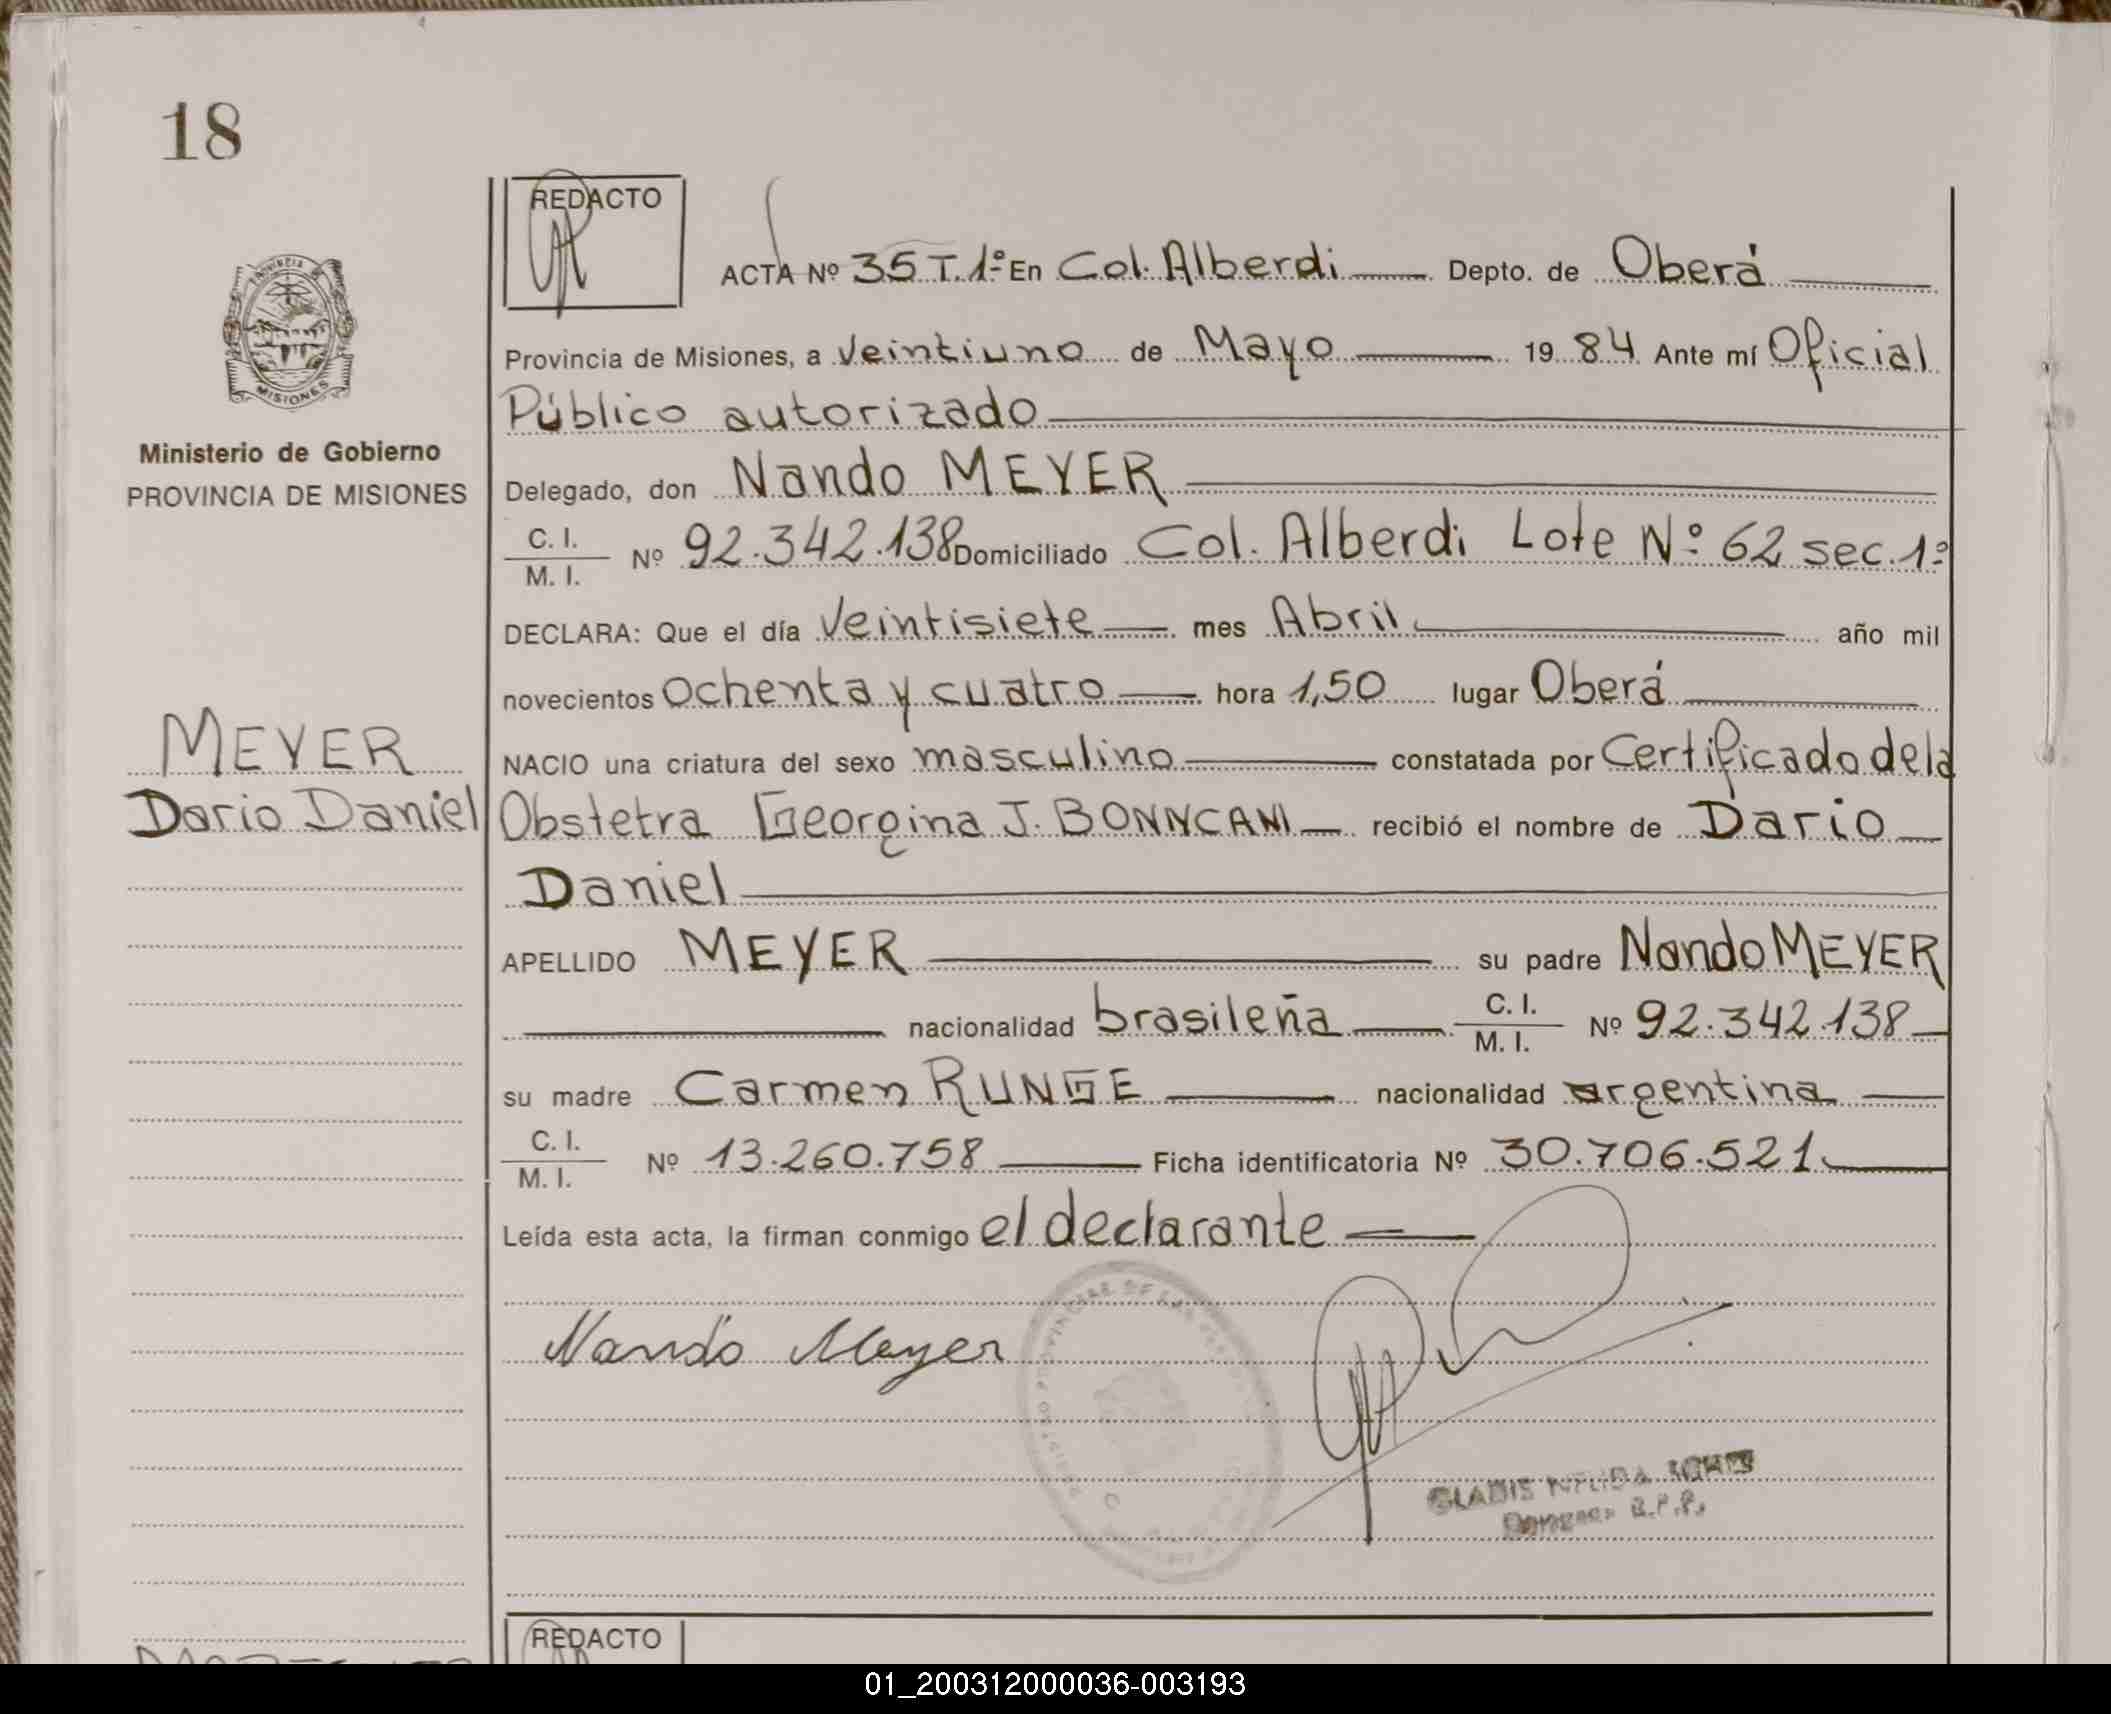 18
REDACTO
ACTA Nº 35 T. 1º En Col. Alberdi Depto. de Oberá
Provincia de Misiones, a Veintiuno de Mayo 19 84 Ante mí Oficial
Público autorizado
Ministerio de Gobierno
PROVINCIA DE MISIONES
PROVINCIA
MISIONES
Delegado, don Nando MEYER
C. I.
M. I.
Nº 92.342.138 Domiciliado Col. Alberdi Lote Nº 62 sec. 1º
DECLARA: Que el día Veintisiete mes Abril año mil
novecientos Ochenta y cuatro hora 1,50 lugar Oberá
MEYER
Dario Daniel
NACIO una criatura del sexo masculino constatada por Certificado de la
Obstetra Georgina J. recibió el nombre de Dario
Daniel
APELLIDO MEYER su padre Nando MEYER
nacionalidad brasileña C. I. M. I. Nº 92.342.138
su madre Carmen RUNGE nacionalidad argentina
C. I.
M. I.
Nº 13.260.758 Ficha identificatoria Nº 30.706.521
Leída esta acta, la firman conmigo el declarante
Nando Meyer
GLADIS
REDACTO
01_200312000036-003193